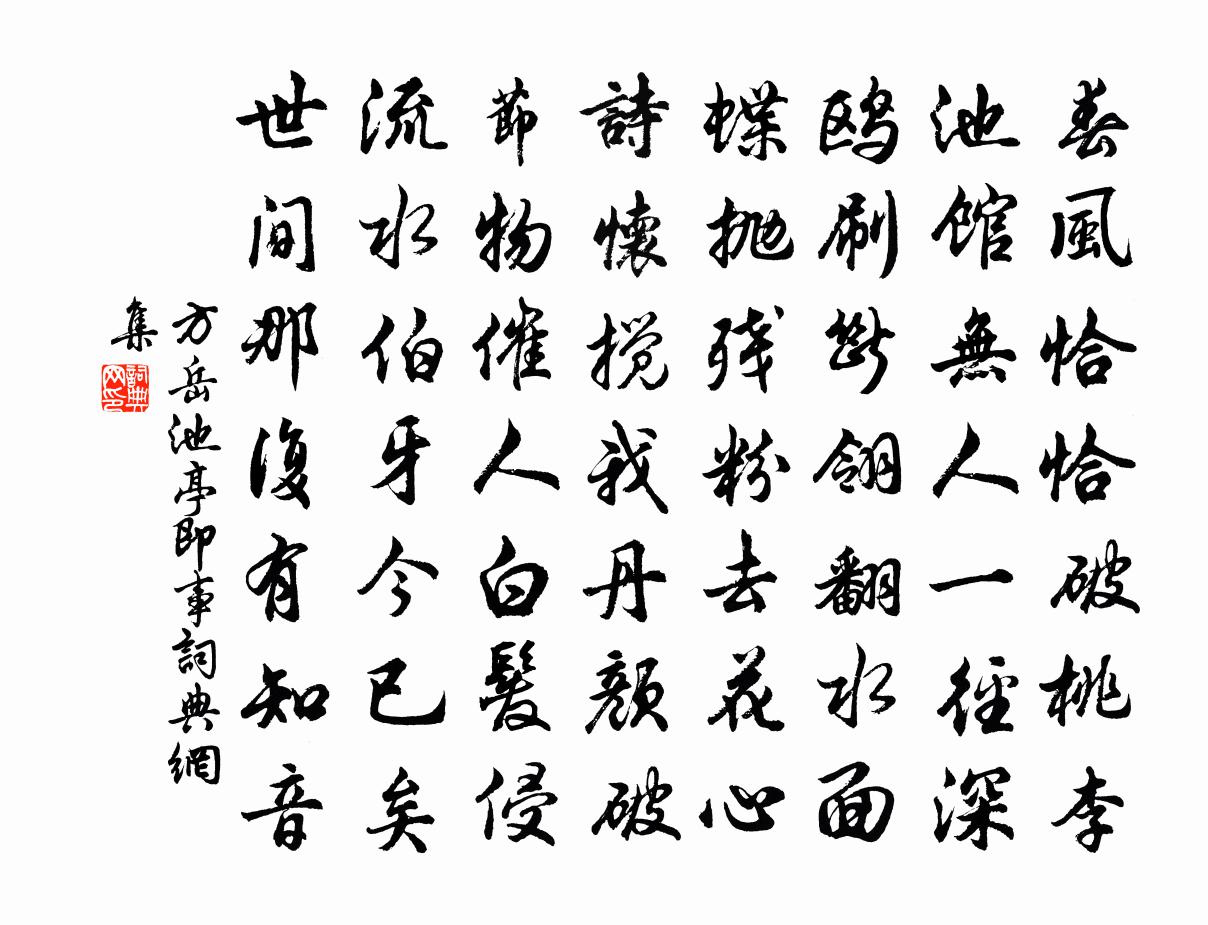 春風恰恰破桃李
池館無人一徑深
鸥刷斷翎翻水面
蝶抛残粉去花心
詩懷搅我丹颜破
節物催人白髮侵
流水伯牙今已矣
世间那復有知音
方岳池亭即事詞典網
集
詞典網印